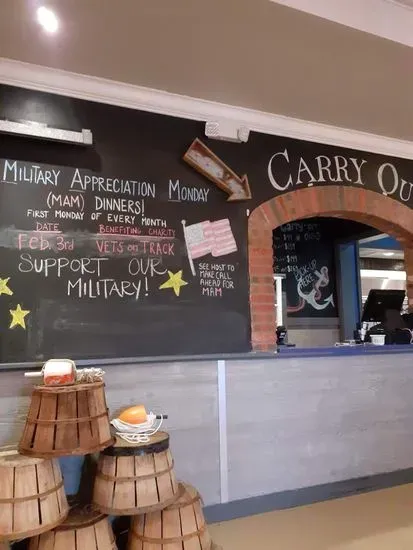 Military Appreciation Monday
(MAM) Dinners!
First Monday of Every Month
Date Benefiting Charity
Feb. 3rd Vets on Track
Support Our
Military!
See Host to
Make Call
Ahead for
MAM
Carry Ou